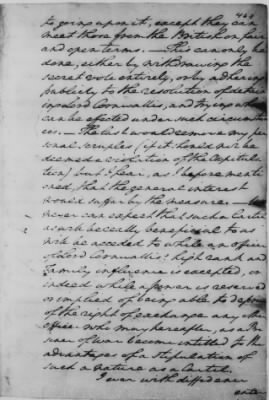 469
to going upon it, except they can
meet those from the British on fair
and open terms. — This can only be
done, either by withdrawing the
secret vote entirely, or by adhering
publicly to the resolution of detain
ing Lord Cornwallis, and trying what
can be effected under such circumstan
ces. — The last would remove my per
sonal scruples (if it should not be
deemed a violation of the Capitula
tion) but I fear, as I before menti
oned, that the general interest
would suffer by the measure. — We
never can expect that such a Cartel
as will be really beneficial to us
will be acceded to while an officer
of Lord Cornwallis's high rank and
Family influence is excepted, or
indeed while a power is reserved
or implied of being able to deprive
of the right of exchange any other
officer who may hereafter, as a Pri
soner of war become entitled to the
advantages of a stipulation of
such a nature as a Cartel.
I ever with diffidence
enter